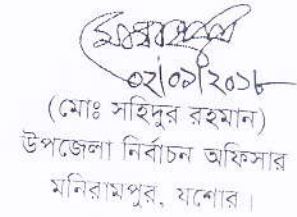 ০২/০১/২০১৮
(মোঃ সহিদুর রহমান)
উপজেলা নির্বাচন অফিসার
মনিরামপুর, যশোর।